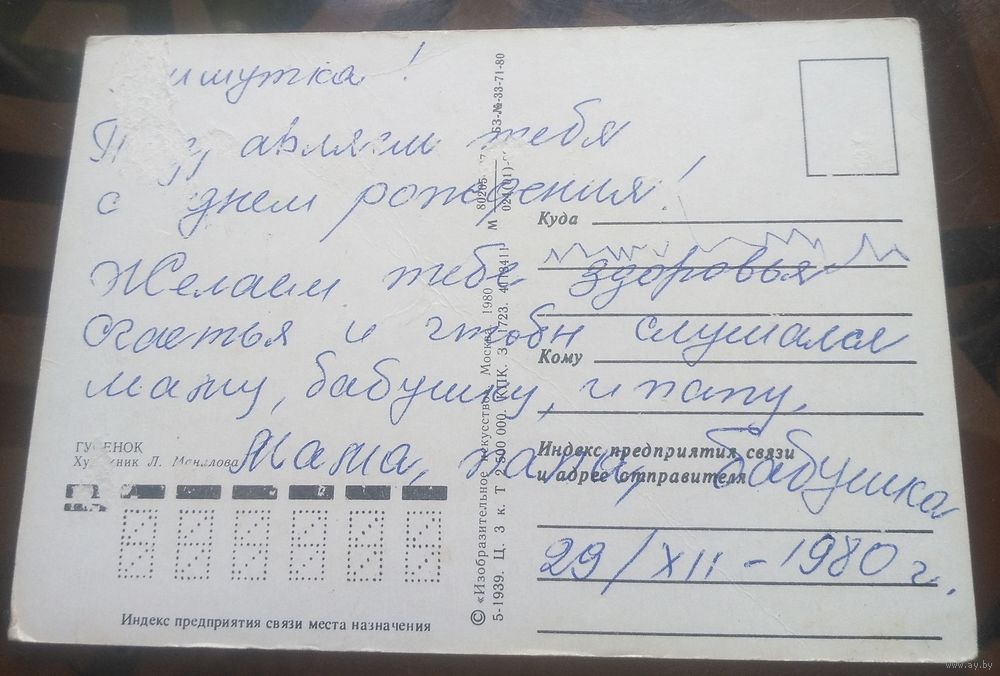 ишутка!
авляем тебя
с днем рождения!
Желаем тебе здоровья
счастья и чтобы слушался
маму, бабушку, и папу.
Мама, папа, бабушка
29/XII-1980 г.
Куда
Кому
Индекс предприятия связи
и адрес отправителя
Л. Манилова
Индекс предприятия связи места назначения
© «Изобразительное искусство». Москва. 1980
5-1939. Ц. 3 к. Т 2 500 000.
63-№-33-71-80
www.ay.by